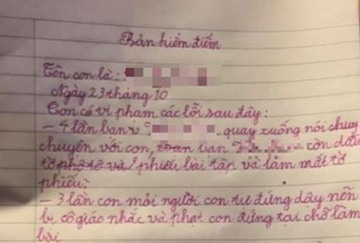 Bản kiểm điểm
Tên con là:
Ngày 23 tháng 10
Con có vi phạm các lỗi sau đây:
- 4 lần bạn quay xuống nói chuy
chuyện với con, bạn còn dấu
tờ phô tô và phiếu bài tập và làm mất tờ
phiếu.
- 3 lần con mỏi người con tự đứng dậy nên
bị cô giáo nhắc và phạt con đứng tại chỗ làm
bài